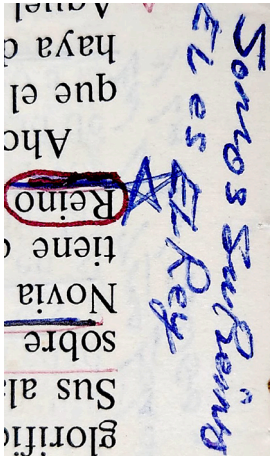 glorifi
Sus ala
sobre
Novia
tiene
Reino
Aho
que el
haya
Aquel
Somos Su Reino
El es El Rey